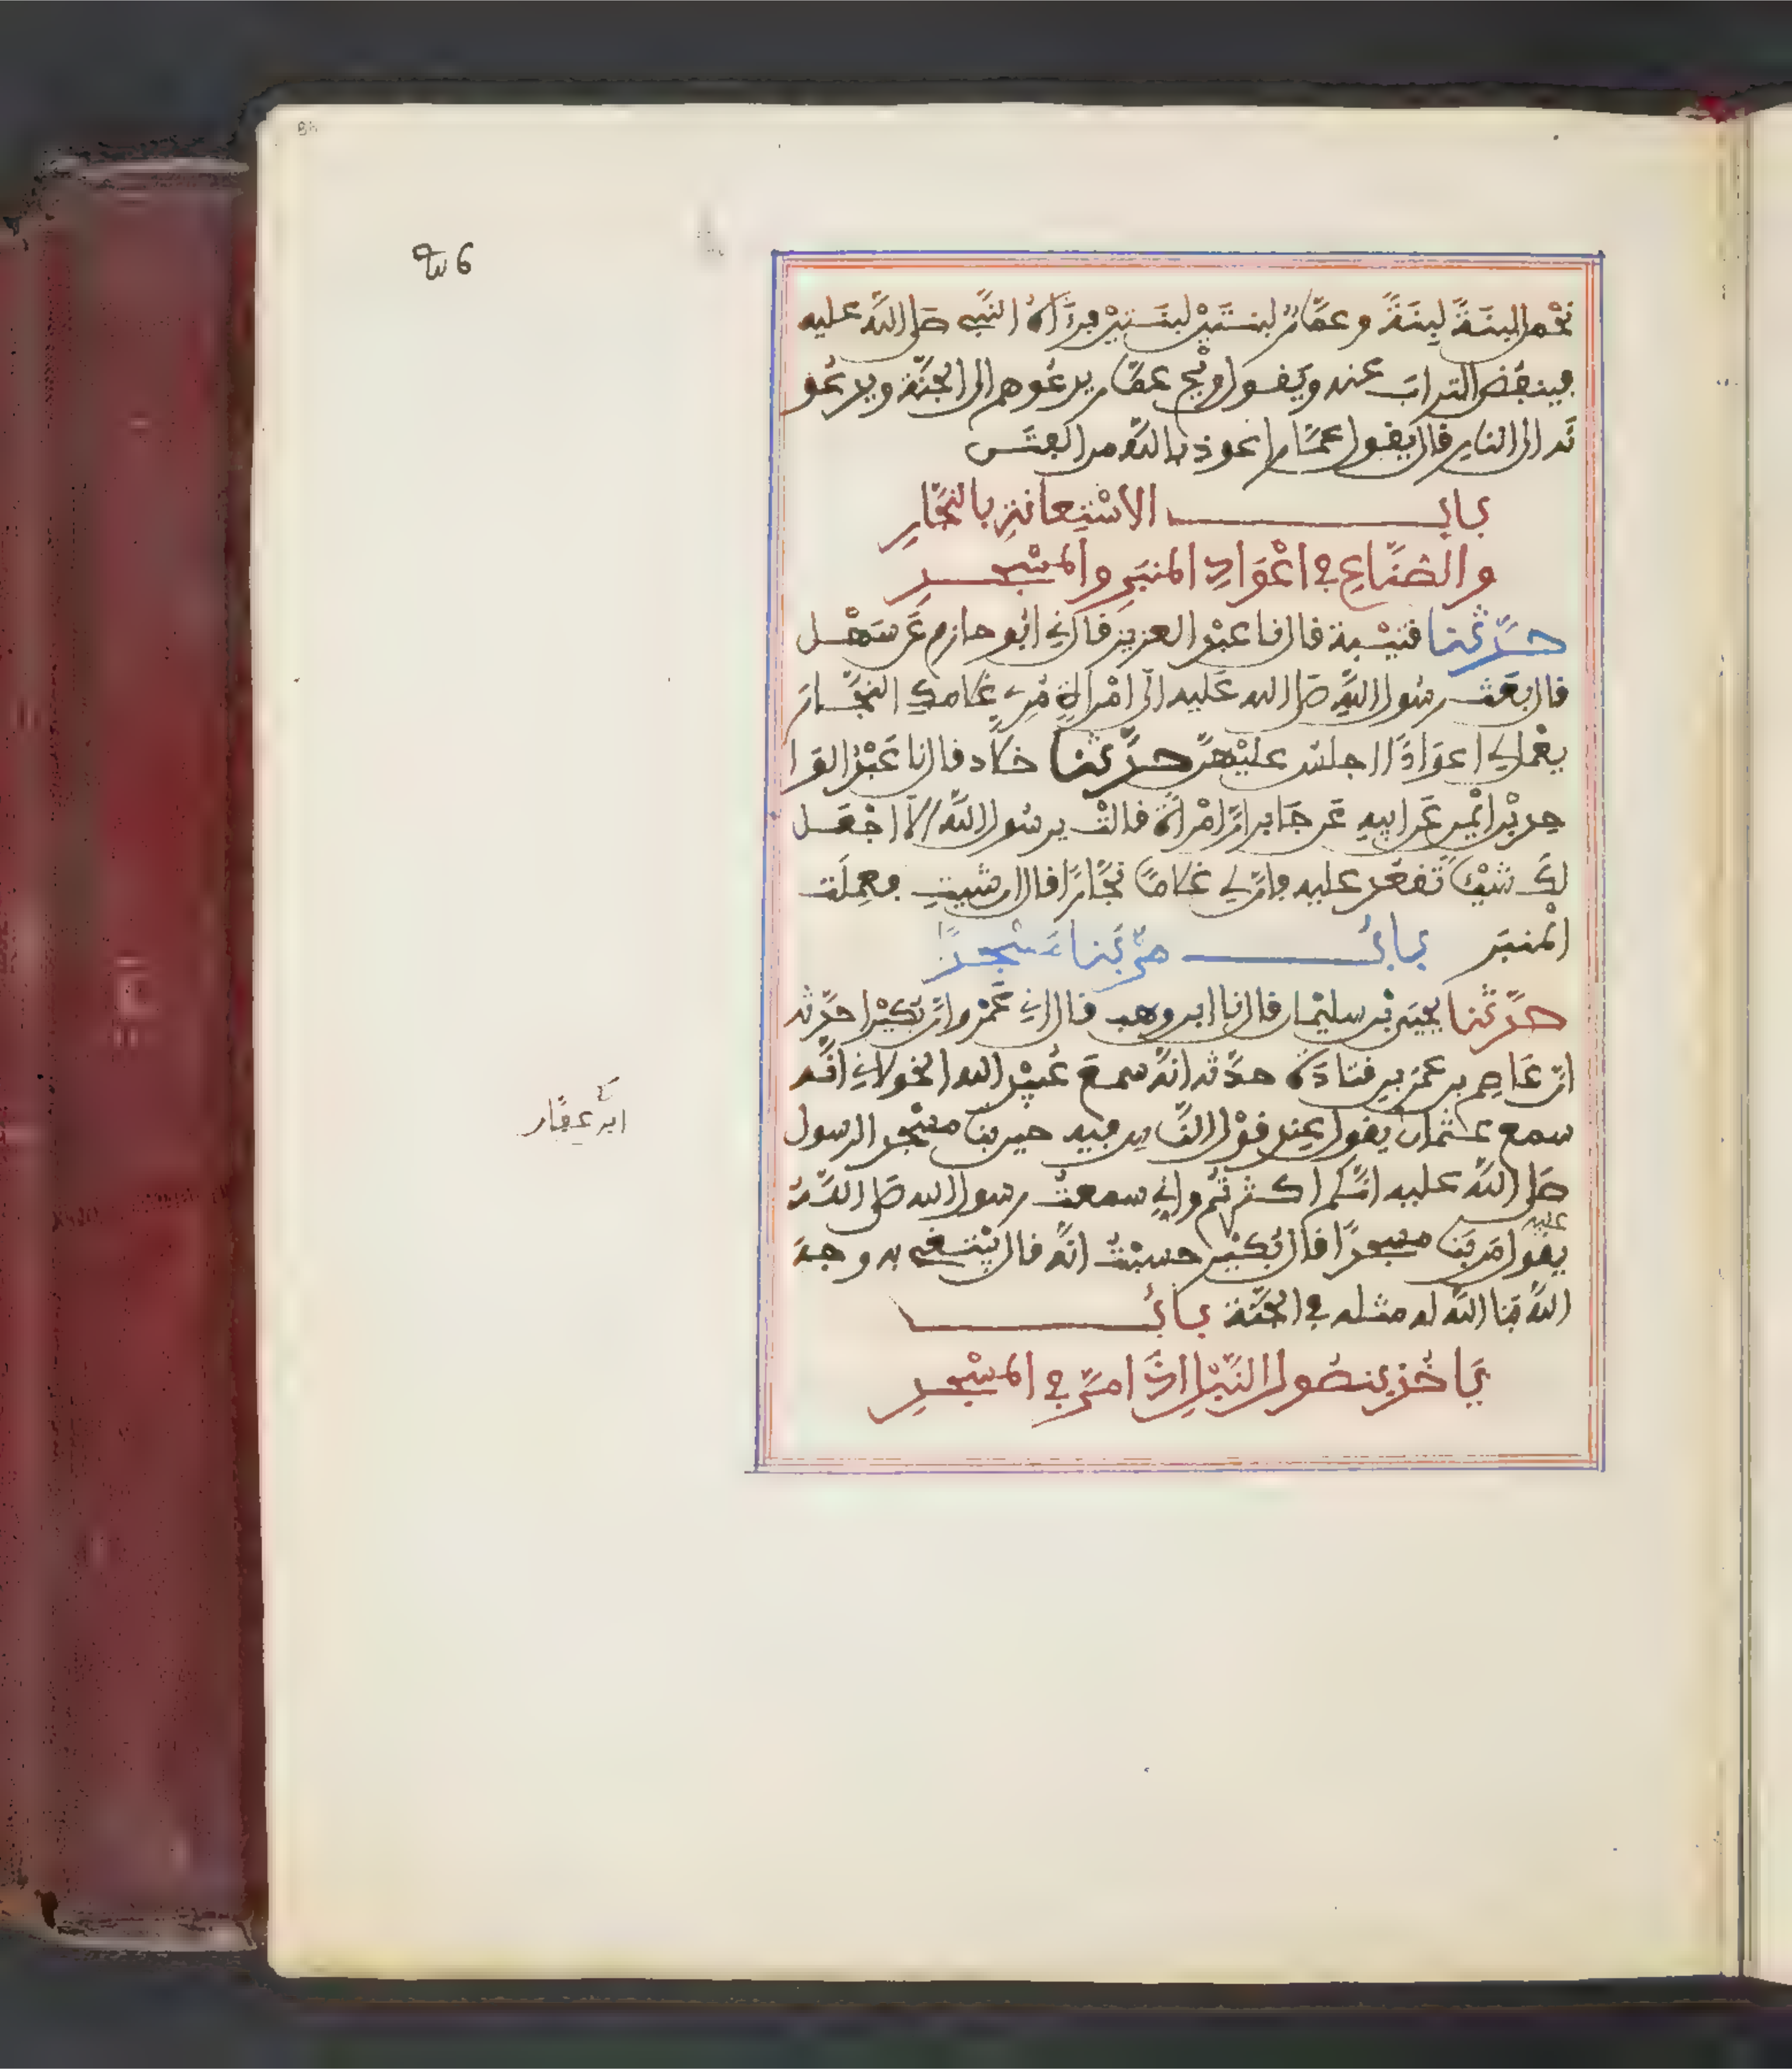 نحمل لبنة لبنة وعمار لبنتين لبنتين فرءاه النبي صلى الله عليه
فينفض التراب عنه ويقول ويح عمار يدعوهم الى الجنة ويدعو
نه الى النار قال يقول عمار اعوذ بالله من الفتن
باب الاستعانة بالنجار
والصناع في اعواد المنبر والمسجد
حدثنا قتيبة قال نا عبد العزيز قال ني ابو حازم عن سهل
قال بعث رسول الله صلى الله عليه الى امراة مري غلامك النجار
يعمل لي اعوادا اجلس عليهن حدثنا خلاد قال نا عبد الوا
حد بن ايمن عن ابيه عن جابر ان امراة قالت يرسول الله الا اجعل
لك شيئا تقعد عليه فان لي غلاما نجارا قال ان شيت فعملت
المنبر باب من بنا مسجدا
حدثنا يحيى بن سليمان قال نا ابن وهب قال اني عمرو ان بكيرا حدثه
ان عاصم بن عمر بن قتادة حدثه انه سمع عبيد الله الخولاني انه
سمع عثمان يقول عند قول الناس فيه حين بنا مسجد الرسول
صلى الله عليه انكم اكثرتم واني سمعت رسول الله صلى الله
عليه
يقول من بنا مسجدا قال بكير حسبت انه قال يبتغي به وجه
الله بنا الله له مثله في الجنة باب
ياخذ بنصول النبل اذا مر في المسجد
ابن عفان